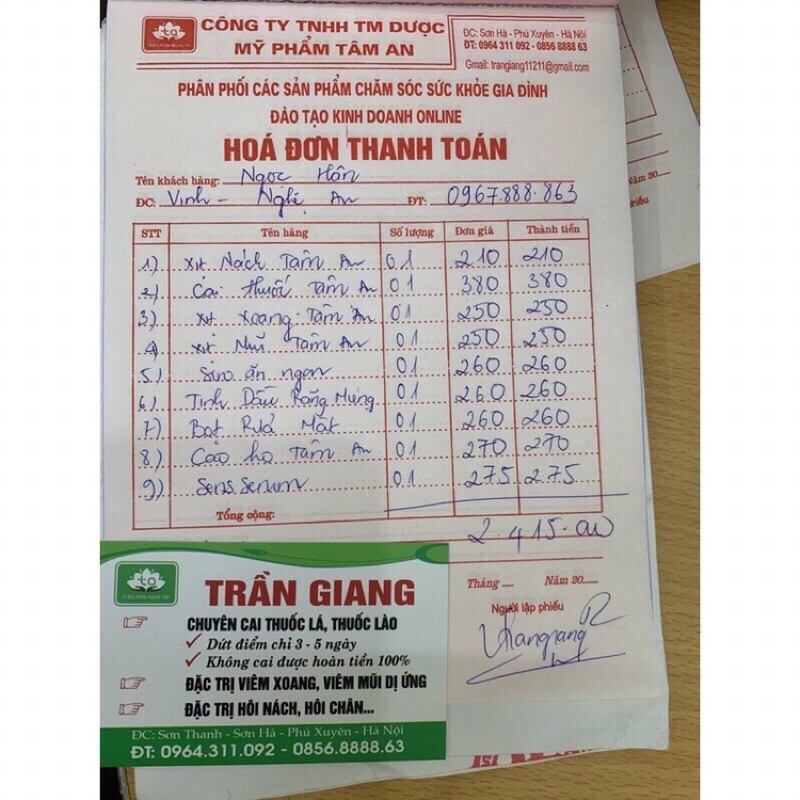 CÔNG TY TNHH TM DƯỢC
MỸ PHẨM TÂM AN
ĐC: Sơn Hà - Phú Xuyên - Hà Nội
ĐT: 0964 311 092 - 0856 8888 63
Gmail: trangiang11211@gmail.com
PHÂN PHỐI CÁC SẢN PHẨM CHĂM SÓC SỨC KHỎE GIA ĐÌNH
ĐÀO TẠO KINH DOANH ONLINE
HOÁ ĐƠN THANH TOÁN
Tên khách hàng: Ngọc Hân
ĐC: Vinh - Nghệ An ĐT: 0967.888.863
STT Tên hàng Số lượng Đơn giá Thành tiền
1) Xịt Nách Tâm An 01 210 210
2) Cai thuốc Tâm An 01 380 380
3) Xịt Xoang Tâm An 01 250 250
4) Xịt Mũi Tâm An 01 250 250
5) ăn ngon 01 260 260
6) Tinh Dầu Răng Miệng 01 260 260
7) Bọt Rửa Mặt 01 260 260
8) Cao ho Tâm An 01 270 270
9) Sens Serum 01 275 275
Tổng cộng:
2.415.00
Tháng ..... Năm 20.....
Người lập phiếu
TRẦN GIANG
CHUYÊN CAI THUỐC LÁ, THUỐC LÀO
Dứt điểm chỉ 3 - 5 ngày
Không cai được hoàn tiền 100%
ĐẶC TRỊ VIÊM XOANG, VIÊM MŨI DỊ ỨNG
ĐẶC TRỊ HÔI NÁCH, HÔI CHÂN...
ĐC: Sơn Thanh - Sơn Hà - Phú Xuyên - Hà Nội
ĐT: 0964.311.092 - 0856.8888.63
Năm 20....
phiếu